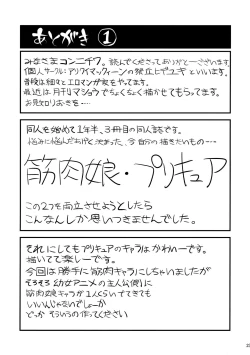 あとがき①
みなさまコンニチワ。読んでくださってありがとーございます。
個人サークル:アリクイマッフィーンの
といいます。
普段は細々とエロマンガ家をやってます。
最近は月刊マショウでちょくちょく描かせてもらってます。
お見知りおきを…
同人を始めて1年半、3冊目の同人誌です。
悩みに悩んだあげく決まった、今自分の描きたいもの…
筋肉娘・プリキュア
この2つを両立させようとしたら
こんなんしか思いつきませんでした。
それにしてもプリキュアのキャラはかわいーです。
描いてて楽しーです。
今回は勝手に筋肉キャラにしちゃいましたが
そろそろ幼女アニメの主人公側に
筋肉娘キャラが1人くらいでてきても
いいんじゃないでしょーか
どっか そういうの作ってください